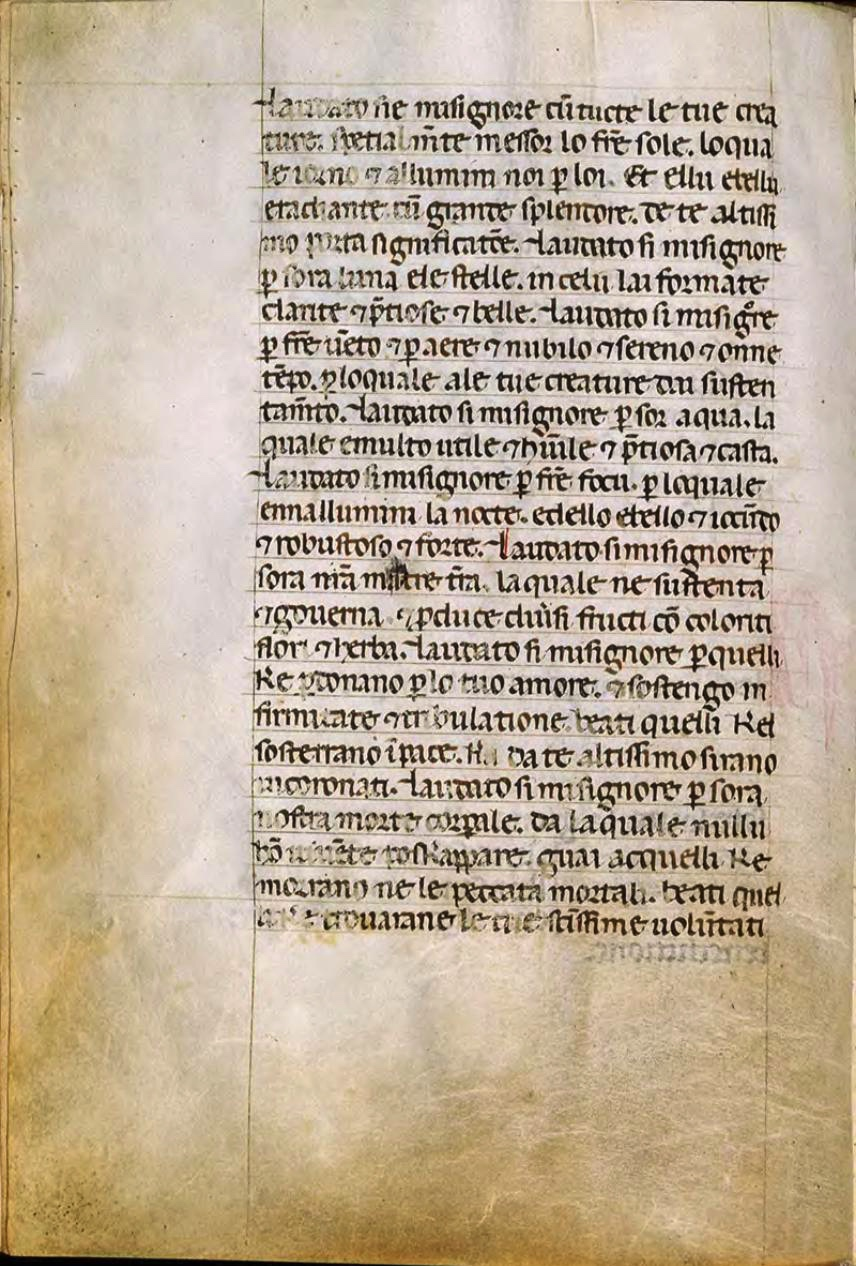 Laudato sie misignore cū tucte le tue crea
ture. spetialm̄te messor lo fr̄e sole. loqua
le iorno ⁊ allumini noi ꝑ loi. Et ellu ebellu
eradiante cū grande splendore. de te altissi
mo porta significatōe. Laudato si misignore
ꝑ sora luna ele stelle. in celu lai formate
clarite ⁊ p̄tiose ⁊ belle. Laudato si misigr̄e
ꝑ fr̄e uēto ⁊ ꝑ aere ⁊ nubilo ⁊ sereno ⁊ onne
tēpo. ꝑ loquale ale tue creature dai susten
tam̄to. Laudato si misignore ꝑ sor aqua. la
quale emulto utile ⁊ hūile ⁊ p̄tiosa ⁊ casta.
Laudato si misignore ꝑ fr̄e focu. ꝑ loquale
ennallumini la nocte. edello ebello ⁊ iocūdo
⁊ robustoso ⁊ forte. Laudato si misignore ꝑ
sora nr̄a matre tr̄a. la quale ne sustenta
⁊ gouerna ⁊ ꝓduce diu̾si fructi cō coloriti
flori ⁊ herba. Laudato si misignore ꝑ quelli
ke ꝑdonano ꝑ lo tuo amore. ⁊ sostengo in
firmitate ⁊ tribulatione beati quelli ke
sosterrano ī pace. ka da te altissimo sirano
incoronati. Laudato si misignore ꝑ sora
nostra morte corꝑale. da la quale nullu
hō uiuēte poskappare. guai acquelli ke
morrano ne le peccata mortali. beati quel
li ke trouarane le tue sc̄issime uolūtati